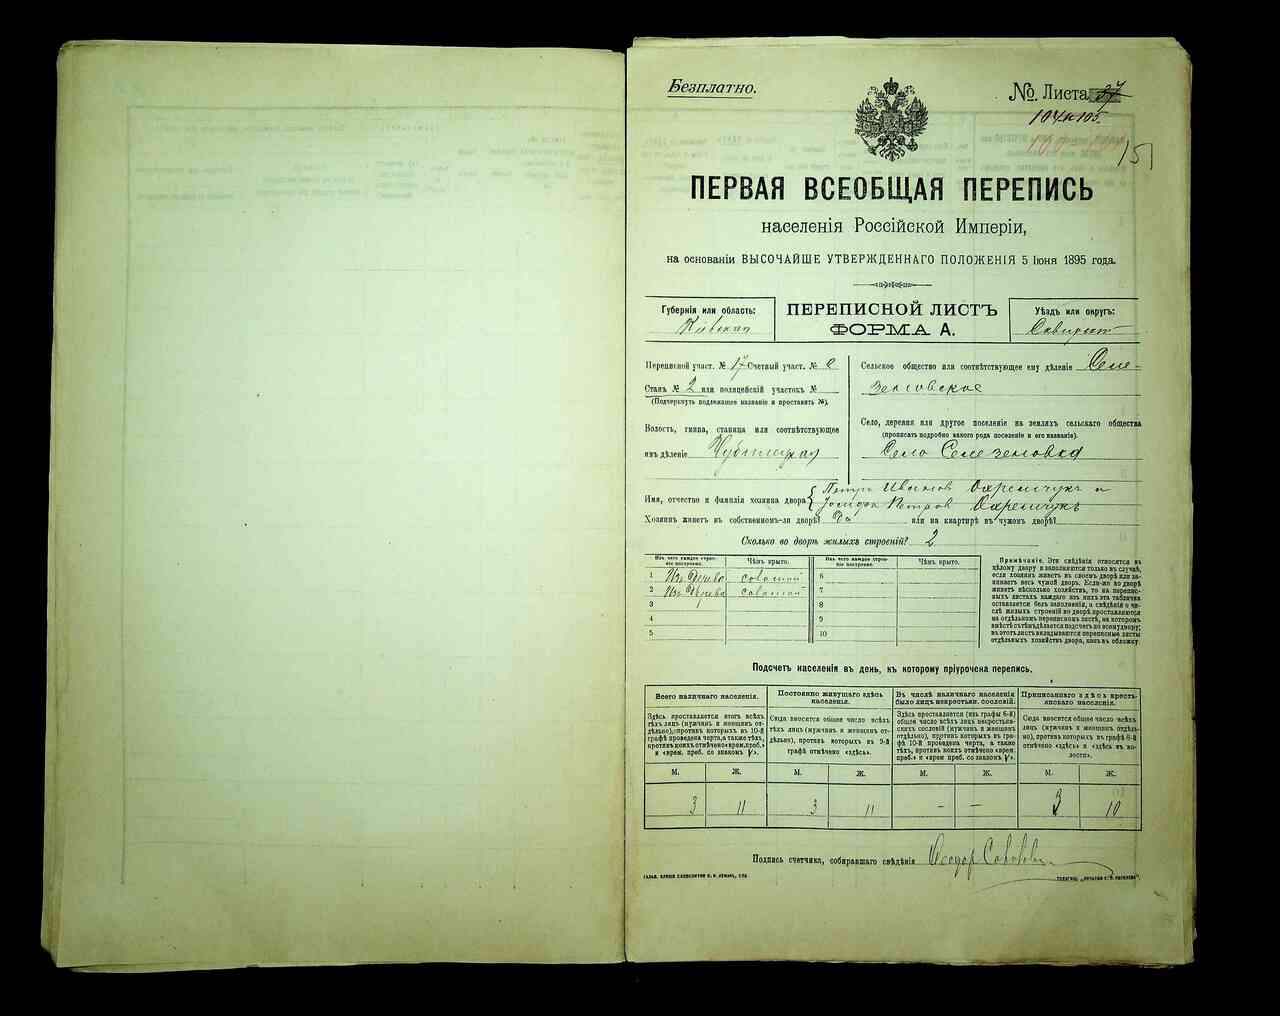 Безплатно.
№ Листа 37
104 и 105.
151
ПЕРВАЯ ВСЕОБЩАЯ ПЕРЕПИСЬ
населенія Россійской Имперіи,
на основаніи ВЫСОЧАЙШЕ УТВЕРЖДЕННАГО ПОЛОЖЕНІЯ 5 Іюня 1895 года.
Губернія или область:
Кіевская
ПЕРЕПИСНОЙ ЛИСТЪ
ФОРМА А.
Уѣздъ или округъ:
Сквирск
Переписной участ. № 17 Счетный участ. №
Станъ № 2 или полицейскій участокъ №
(Подчеркнуть подлежащее названіе и проставить №).
Волость, гмина, станица или соотвѣтствующее
имъ дѣленіе
Сельское общество или соотвѣтствующее ему дѣленіе Селе-
зеновское
Село, деревня или другое поселеніе на земляхъ сельскаго общества
(прописать подробно какого рода поселеніе и его названіе).
Село Селезеновка
Имя, отчество и фамилія хозяина двора Петръ Ивановъ Охремчукъ и
Іосифъ Петровъ Охремчукъ
Хозяинъ живетъ въ собственномъ-ли дворѣ? Да или на квартирѣ въ чужомъ дворѣ?
Сколько во дворѣ жилыхъ строеній? 2
Изъ чего каждое строе-
ніе построено.
Чѣмъ крыто.
Изъ чего каждое строе-
ніе построено.
Чѣмъ крыто.
1 Изъ Дерева соломой 6
2 Изъ Дерева соломой 7
3 8
4 9
5 10
Примѣчаніе. Эти свѣдѣнія относятся къ
цѣлому двору и заполняются только въ случаѣ,
если хозяинъ живетъ въ своемъ дворѣ или за-
нимаетъ весь чужой дворъ. Если-же во дворѣ
живетъ нѣсколько хозяйствъ, то на перепис-
ныхъ листахъ каждаго изъ нихъ эта табличка
оставляется безъ заполненія, а свѣдѣнія о чи-
слѣ жилыхъ строеній во дворѣ проставляются
на отдѣльномъ переписномъ листѣ, на которомъ
вмѣстѣ съ тѣмъ дѣлается подсчетъ по всему двору;
въ этотъ листъ вкладываются переписные листы
отдѣльныхъ хозяйствъ двора, какъ въ обложку.
Подсчетъ населенія въ день, къ которому пріурочена перепись.
Всего наличнаго населенія.
Здѣсь проставляется итогъ всѣхъ
тѣхъ лицъ (мужчинъ и женщинъ от-
дѣльно), противъ которыхъ въ 10-й
графѣ проведена черта, а также тѣхъ,
противъ коихъ отмѣчено «врем. преб.»
и «врем. преб. со знакомъ V».
М. Ж.
3 11
Постоянно живущаго здѣсь
населенія.
Сюда вносится общее число всѣхъ
тѣхъ лицъ (мужчинъ и женщинъ от-
дѣльно), противъ которыхъ въ 9-й
графѣ отмѣчено «здѣсь».
М. Ж.
3 11
Въ числѣ наличнаго населенія
было лицъ некрестьян. сословій.
Здѣсь проставляется (изъ графы 6-й)
общее число всѣхъ лицъ некрестьян-
скихъ сословій (мужчинъ и женщинъ
отдѣльно), противъ которыхъ въ гра-
фѣ 10-й проведена черта, а также
тѣхъ, противъ коихъ отмѣчено «врем.
преб.» и «врем. преб. со знакомъ V».
М. Ж.
– –
Приписаннаго здѣсь кресть-
янскаго населенія.
Сюда вносится общее число всѣхъ
тѣхъ лицъ (мужчинъ и женщинъ отдѣль-
но), противъ которыхъ въ графѣ 8-й
отмѣчено «здѣсь» и «здѣсь въ во-
лости».
М. Ж.
3 10
Подпись счетчика, собиравшаго свѣдѣнія Ѳеодор